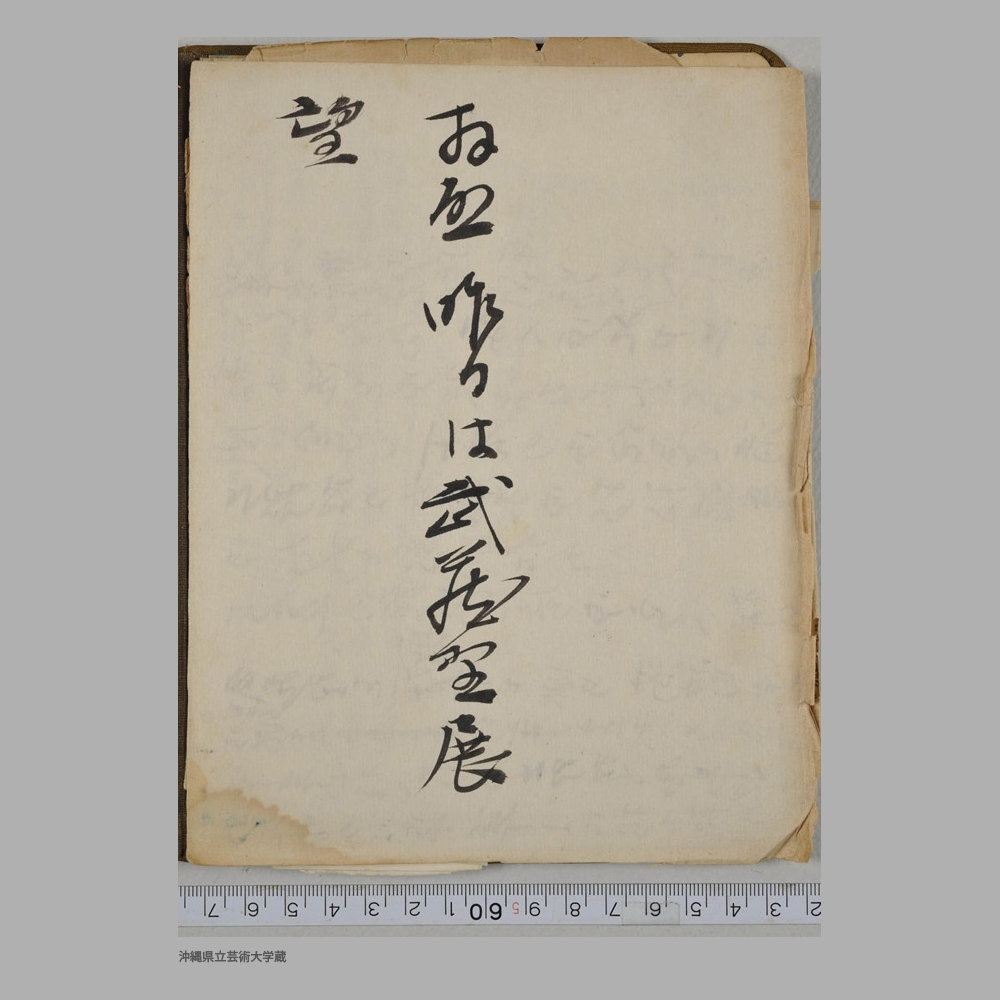 拝啓 昨日は武蔵野展
望
7 6 5 4 3 2 1 60 5 9 8 7 6 5 4 3 2
沖縄県立芸術大学蔵